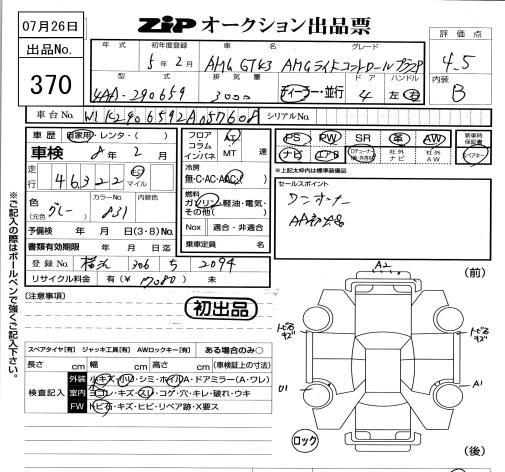 07月26日
ZiP オークション出品票
出品No.
370
評価点
4.5
内装
B
年式 初年度登録 車名 グレード
5年2月 AMG GT43 AMGライドコントロールプラスP
型式 排気量 ドア ハンドル
4AA-290659 3000 ディーラー・並行 4 左・右
車台No. W1K2906592A057608 シリアルNo.
車歴 自家用・レンタ・( )
車検 8年2月
走行 46322 キロ マイル
色 (元色) グレー カラーNo. 831 内装色
予備検 年 月 日(3・8)No.
書類有効期限 年 月 日迄
登録No. 横浜 306 ち 2094
リサイクル料金 有(¥ 17080 ) 未
フロア コラム インパネ AT MT 速
冷房 無・C・AC・AAC
燃料 ガソリン・軽油・電気・その他( )
Nox 適合・非適合
乗車定員 名
PS PW SR 革 AW
ナビ エアB 社外ナビ 社外AW
新車時保証書
スペアキー
*上記太枠内は標準装備品
セールスポイント
ワンオーナー
初出品
[注意事項]
※ご記入の際はボールペンで強くご記入下さい。
スペアタイヤ[有] ジャッキ工具[有] AWロックキー[有] ある場合のみ○
長さ cm 幅 cm 高さ cm (車検証上の寸法)
検査記入
外装 小キズ・小凹・シミ・ホイルA・ドアミラー(A・ワレ)
室内 ヨゴレ・キズ・スレ・コゲ・穴・キレ・破れ・ウキ
FW トビ石・キズ・ヒビ・リペア跡・X要ス
(前)
A2
トビ石キズ
トビ石キズ
A1
ロック
(後)